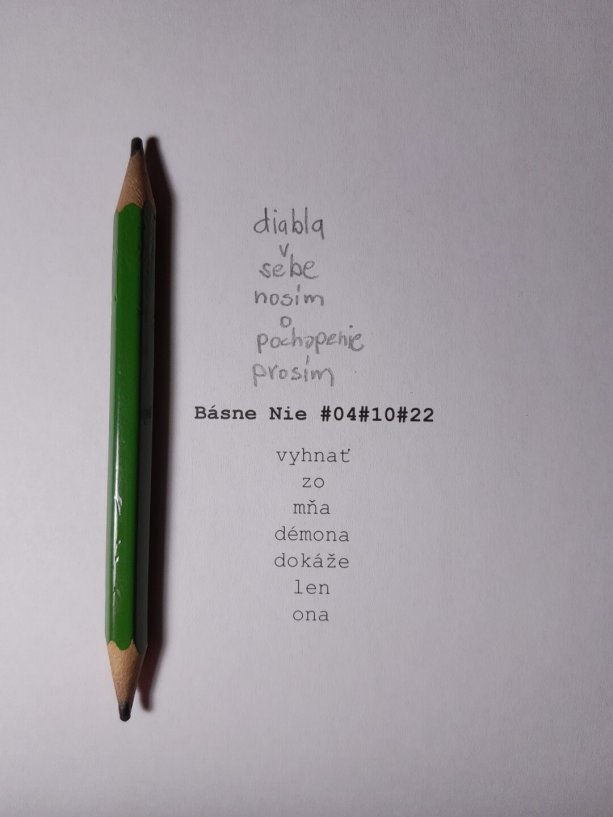 diabla
v
sebe
nosím
o
pochopenie
prosím
Básne Nie #04#10#22
vyhnať
zo
mňa
démona
dokáže
len
ona